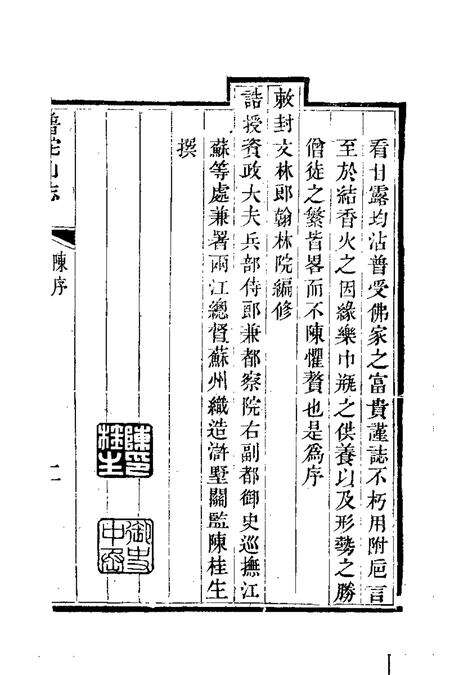 看甘露均沾普受佛家之富貴謹誌不朽用附巵言
至於結香火之因緣樂巾瓶之供養以及形勢之勝
僧徒之繁皆畧而不陳懼贅也是爲序
敕封文林郎翰林院編修
誥授資政大夫兵部侍郎兼都察院右副都御史巡撫江
蘇等處兼署兩江總督蘇州織造滸墅關監陳桂生
撰
陳印
桂生
御史
中丞
普陀山志
陳序
二